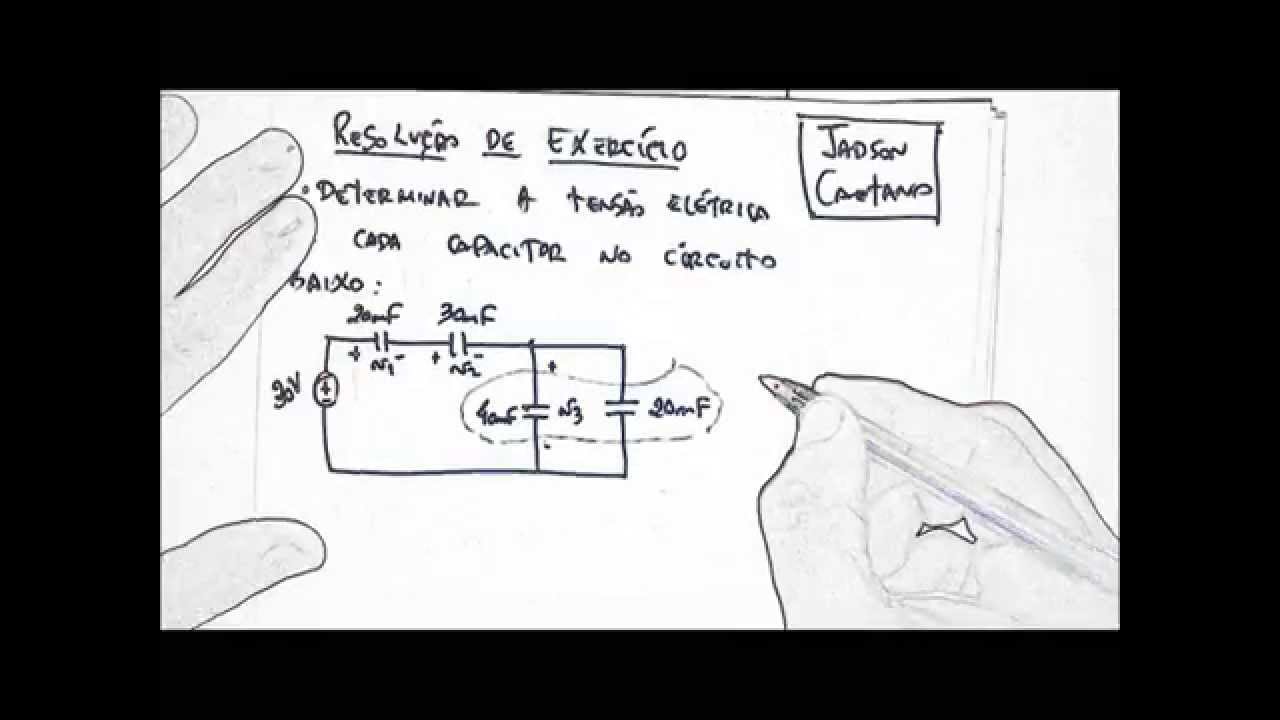 RESOLUÇÃO DE EXERCÍCIO
JADSON
CAETANO
• DETERMINAR A TENSÃO ELÉTRICA
CADA CAPACITOR NO CIRCUITO
BAIXO:
20mF 30mF
+ v1 - + v2 -
30V
+
40mF v3 20mF
-